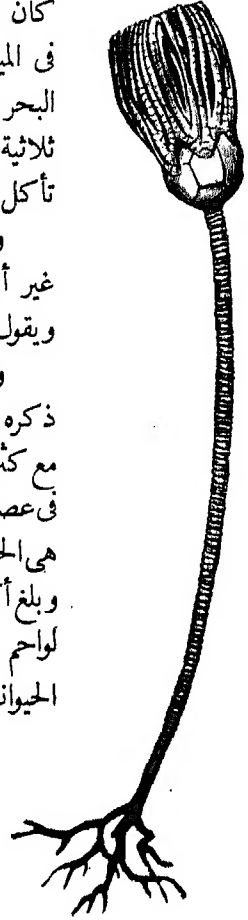 كان
فى المي
البحر
ثلاثية
تأكل
و
غير أ
ويقول
و
ذكره
مع كث
فى عص
هى الح
وبلغ أ
لواحم
الحيوان